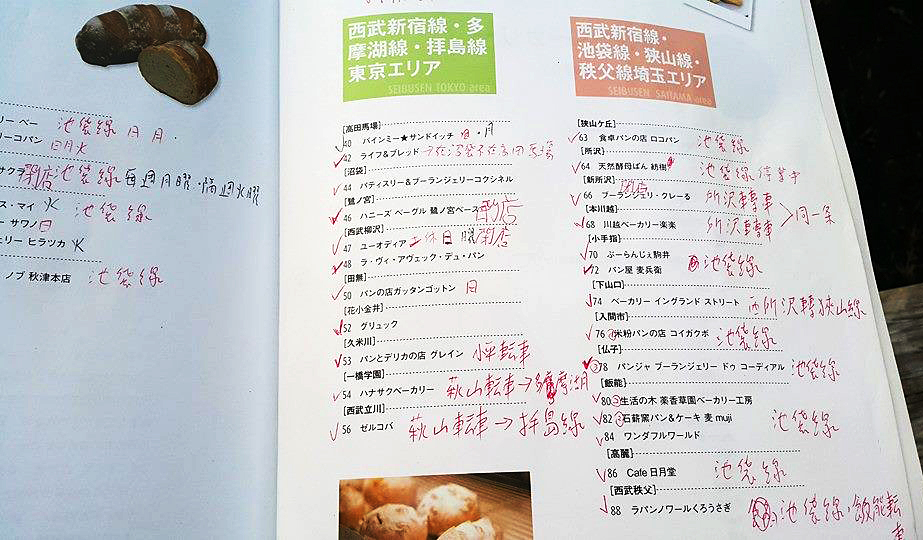 リー ベー 池袋線 月 月
リーコパン 日月火
サクラ 閉店 池袋線 每週月曜・隔週火曜
ス・マイ 火 池袋線
ー サワノ 日
ェリー ヒラツカ 火
ノブ 秋津本店 池袋線
西武新宿線・多
摩湖線・拝島線
東京エリア
SEIBUSEN TOKYO area
[高田馬場]
40 バインミー★サンドイッチ 日・月
42 ライフ&ブレッド →在沼袋不在高田馬場
[沼袋]
44 パティスリー&ブーランジェリーコクシネル
[鷺ノ宮]
46 ハニーズ ベーグル 鷺ノ宮ベース 閉店
[西武柳沢]
47 ユーオディア 休日 閉店
48 ラ・ヴィ・アヴェック・デュ・パン
[田無]
50 パンの店ガッタンゴットン 日
[花小金井]
52 グリュック
[久米川]
53 パンとデリカの店 グレイン 小平転車
[一橋学園]
54 ハナサクベーカリー 萩山転車→多摩湖
[西武立川]
56 ゼルコバ 萩山転車→拝島線
西武新宿線・
池袋線・狭山線・
秩父線埼玉エリア
SEIBUSEN SAITAMA area
[狭山ケ丘]
63 食卓パンの店 ロコパン 池袋線
[所沢]
64 天然酵母ぱん 紡樹 池袋線
[新所沢] 閉店
66 ブーランジェリ・クレーる 所沢轉車
[本川越] >同一条
68 川越ベーカリー楽楽 所沢轉車
[小手指]
70 ぶーらんじぇ駒井
72 パン屋 麦兵衛 池袋線
[下山口]
74 ベーカリー イングランド ストリート 西所沢轉狭山線
[入間市]
76 米粉パンの店 コイガクボ 池袋線
[仏子]
78 パンジャ ブーランジェリー ドゥ コーディアル 池袋線
[飯能]
80 生活の木 薬香草園ベーカリー工房
82 石薪窯パン&ケーキ 麦 muji 池袋線
84 ワンダフルワールド
[高麗]
86 Cafe 日月堂 池袋線
[西武秩父]
88 ラパンノワールくろうさぎ 池袋線・飯能転
車